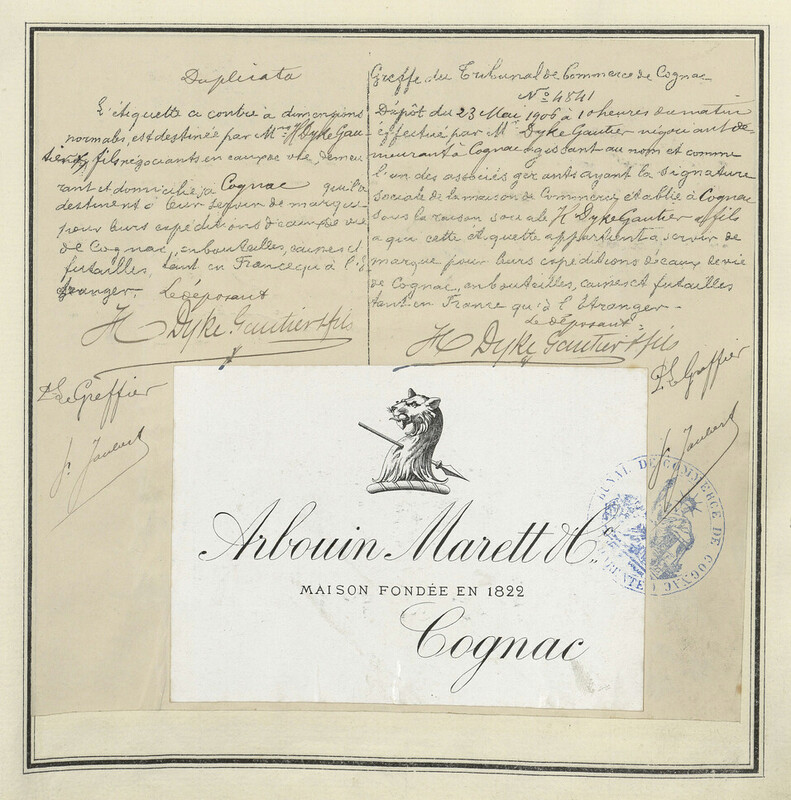 Duplicata
L'étiquette ci contre à dimensions
normales, est destinée par Mrs H Dyke Gau-
tier & fils négociants en eaux de vie, demeu
rant et domiciliés à Cognac qu'ils
destinent à leur servir de marque
pour leurs expéditions d'eaux de vie
de Cognac, en bouteilles, caisses et
futailles, tant en France qu'à l'é-
tranger. Le déposant
H Dyke Gautier & fils
P. Le Greffier
Greffe du Tribunal de Commerce de Cognac
No 4841
Dépôt du 23 Mai 1906 à 10 heures du matin
effectué par Mr Dyke Gautier négociant de-
meurant à Cognac agissant au nom et comme
l'un des associés gérants ayant la signature
sociale de la maison de Commerce établie à Cognac
sous la raison sociale H Dyke Gautier & fils
a qui cette étiquette appartient a servir de
marque pour leurs expéditions d'eaux de vie
de Cognac, en bouteilles, caisses et futailles
tant en France qu'à l'étranger-
Le déposant
H Dyke Gautier & fils
P. Le Greffier
Arbouin Marett & Co.
MAISON FONDÉE EN 1822
Cognac
TRIBUNAL DE COMMERCE DE COGNAC